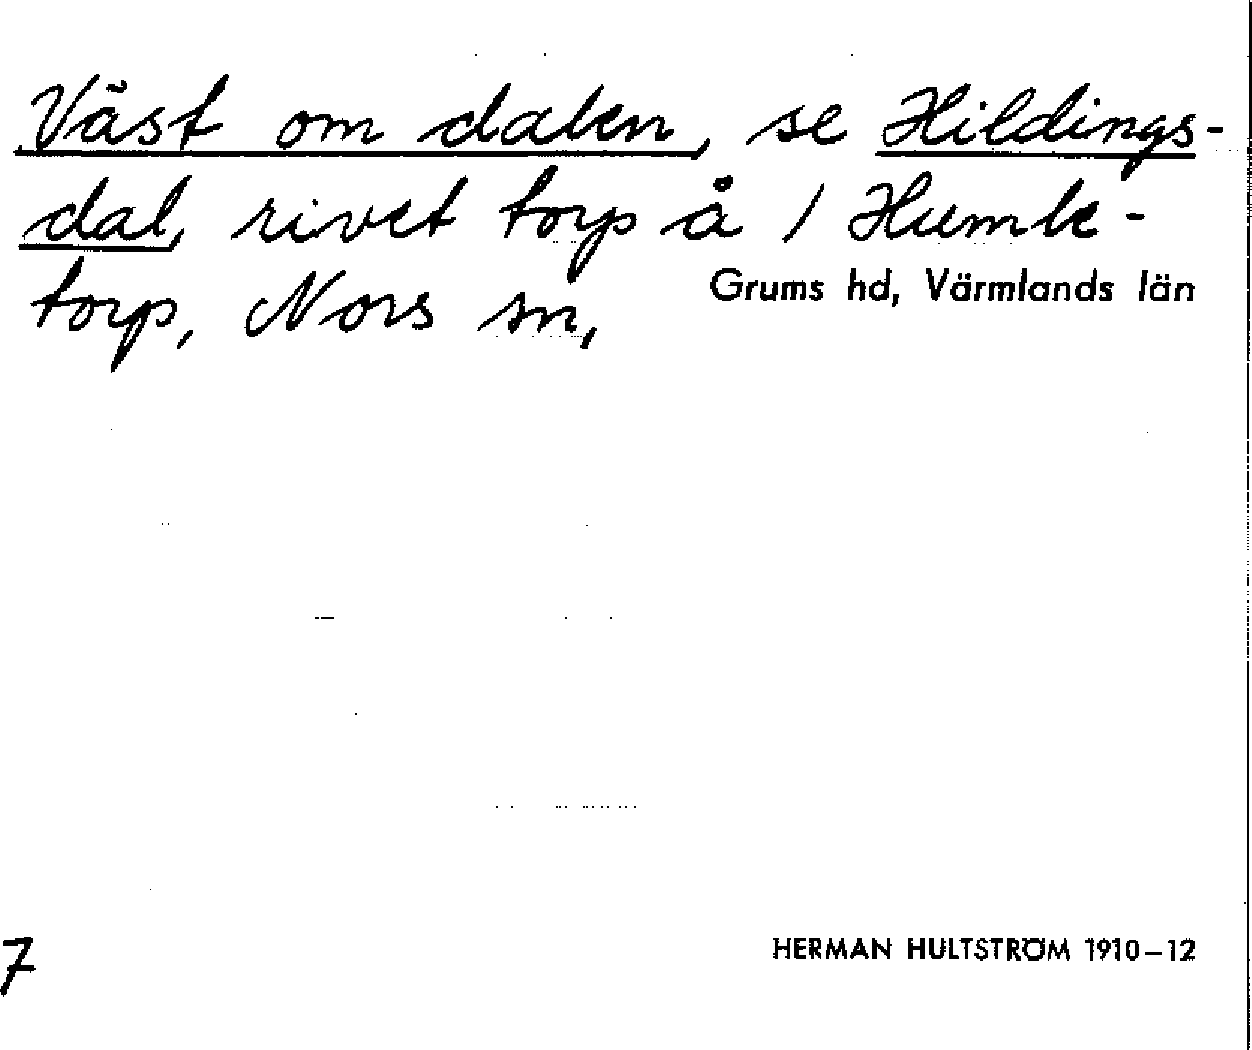 Väst om dalen, se Hildings-
dal, rivet torp å / Humle-
torp, Nors sn,
Grums hd, Värmlands län
7
HERMAN HULTSTRÖM 1910–12